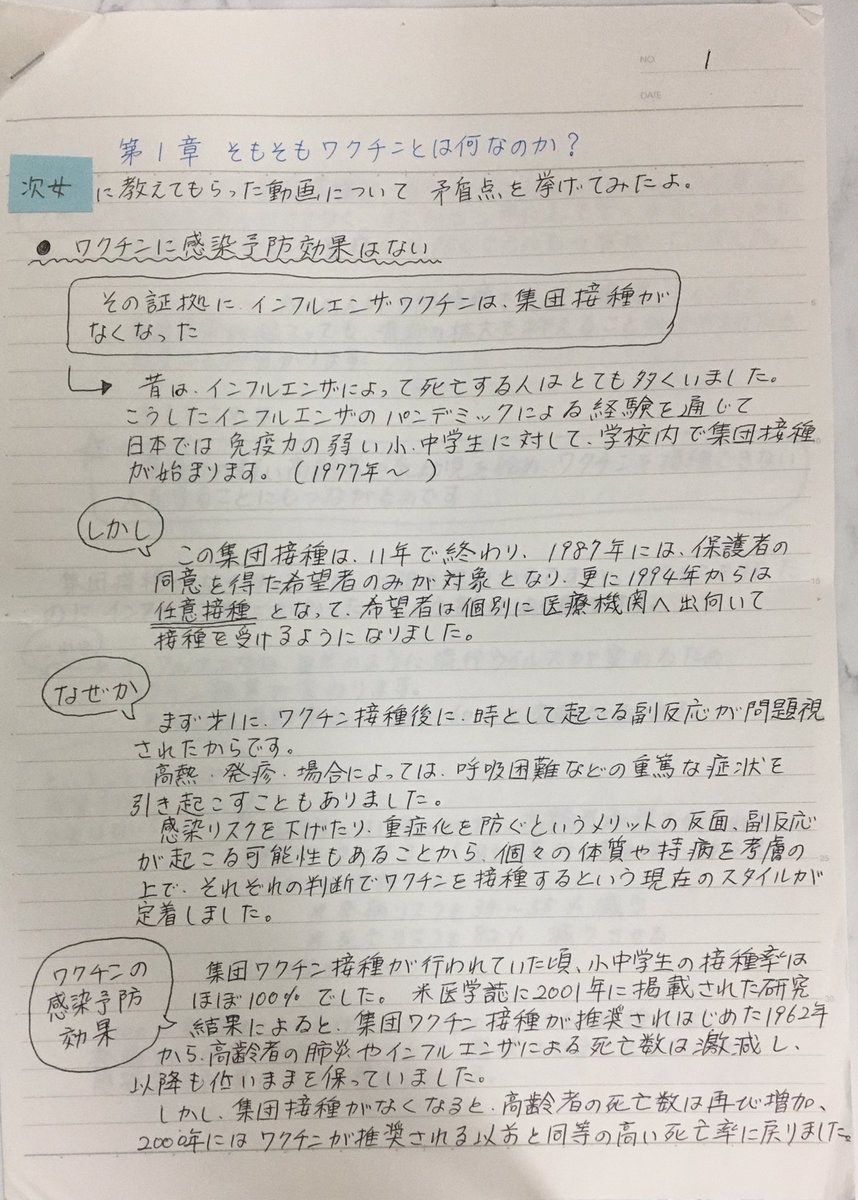 NO. 1
DATE
第1章 そもそもワクチンとは何なのか?
次女 に教えてもらった動画について 矛盾点を挙げてみたよ。
● ワクチンに感染予防効果はない
その証拠に、インフルエンザワクチンは、集団接種が
なくなった
昔は、インフルエンザによって死亡する人はとても多くいました。
こうしたインフルエンザのパンデミックによる経験を通じて
日本では免疫力の弱い小、中学生に対して、学校内で集団接種
が始まります。(1977年〜 )
しかし
この集団接種は、11年で終わり、1987年には、保護者の
同意を得た希望者のみが対象となり、更に1994年からは
任意接種となって、希望者は個別に医療機関へ出向いて
接種を受けるようになりました。
なぜか
まず才1に、ワクチン接種後に、時として起こる副反応が問題視
されたからです。
高熱・発疹・場合によっては、呼吸困難などの重篤な症状を
引き起こすこともありました。
感染リスクを下げたり、重症化を防ぐというメリットの反面、副反応
が起こる可能性もあることから、個々の体質や持病を考慮の
上で、それぞれの判断でワクチンを接種するという現在のスタイルが
定着しました。
ワクチンの
感染予防
効果
集団ワクチン接種が行われていた頃、小中学生の接種率は
ほぼ100%でした。 米医学誌に2001年に掲載された研究
結果によると、集団ワクチン接種が推奨されはじめた1962年
から、高齢者の肺炎やインフルエンザによる死亡数は激減し、
以降も低いままを保っていました。
しかし、集団接種がなくなると、高齢者の死亡数は再び増加、
2000年にはワクチンが推奨される以前と同等の高い死亡率に戻りました。